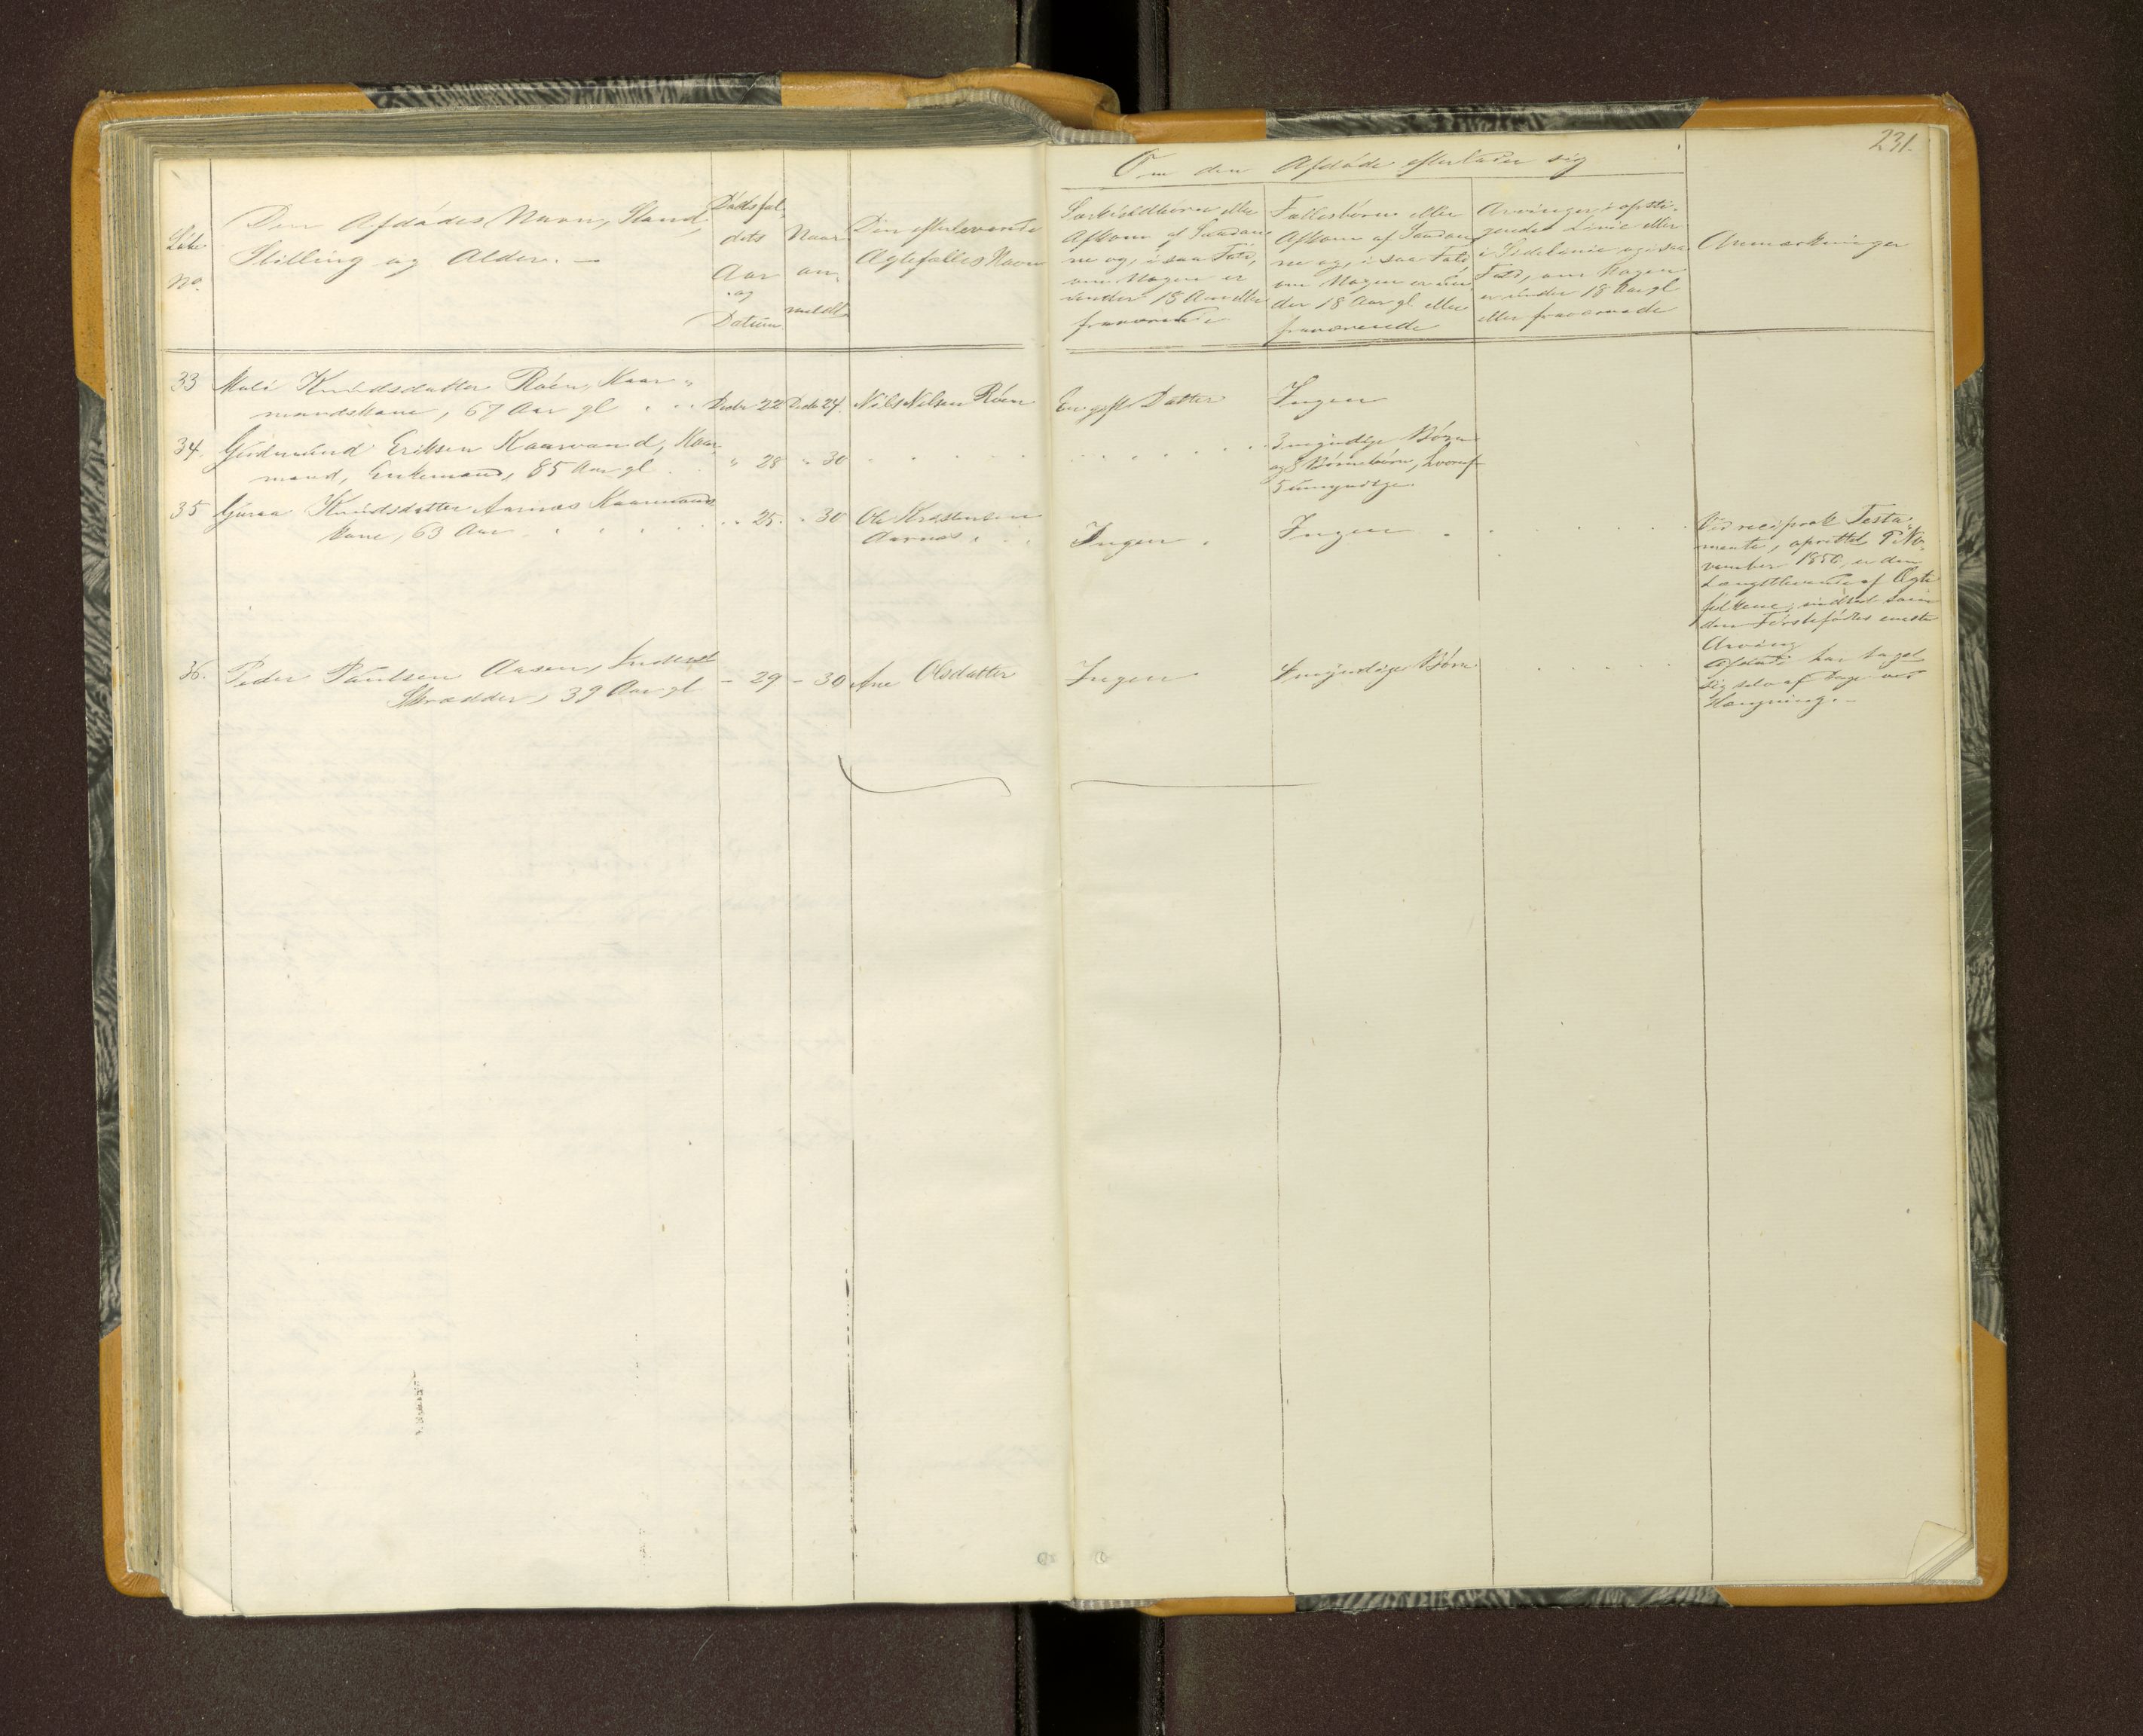 231.
Om den Afdøde efterlader sig
Løbe
No.
Den Afdødes Navn, Stand,
Stilling og Alder. —
Dødsfal-
dets
Aar
og
Datum
Naar
an-
meldt
Den efterlevende
Ægtefælles Navn
Særkuldbørn eller
Afkom af Saadan-
ne og, i saa Fald,
om Nogen er
under 18 Aar eller
fraværende
Fællesbørn eller
Afkom af Saadan-
ne og, i saa Fald
om Nogen er un-
der 18 Aar gl eller
fraværende
Arvinger i opsti-
gende Linie eller
i Sidelinie og i saa
Fald, om Nogen
er under 18 Aar gl
eller fraværende
Anmærkninger
33 Mali Knudsdatter Røen, Kaar-
mandskone, 67 Aar gl . . . Decbr 22 Decbr 24. Nils Nilsen Røen En gift Datter Ingen
34. Gudmund Eriksen Kaarvand, Kaar-
mand, Enkemand, 85 Aar gl . . " 28 " 30 . . . . 3 myndige Børn
og 8 Børnebørn, hvoraf
5 umyndige.
35 Guraa Knudsdatter Aarnæs Kaarmands
kone, 63 Aar . . . . . . 25. - 30 Ole Kristensen
Aarnæs . . . Ingen . Ingen . . . . .
Ved reciprok Testa-
mente, oprettet 9 No-
vember 1850, er den
Længstlevende af Ægte
folkene indsat som
den Førstafdødes eneste
Arving
36. Peder Paulsen Aasen, Inderst
Skrædder, 39 Aar gl - 29 - 30 Ane Olsdatter Ingen myndige Børn . . . .
Afdøde har taget
sig selv af Dage ved
Hængning. —